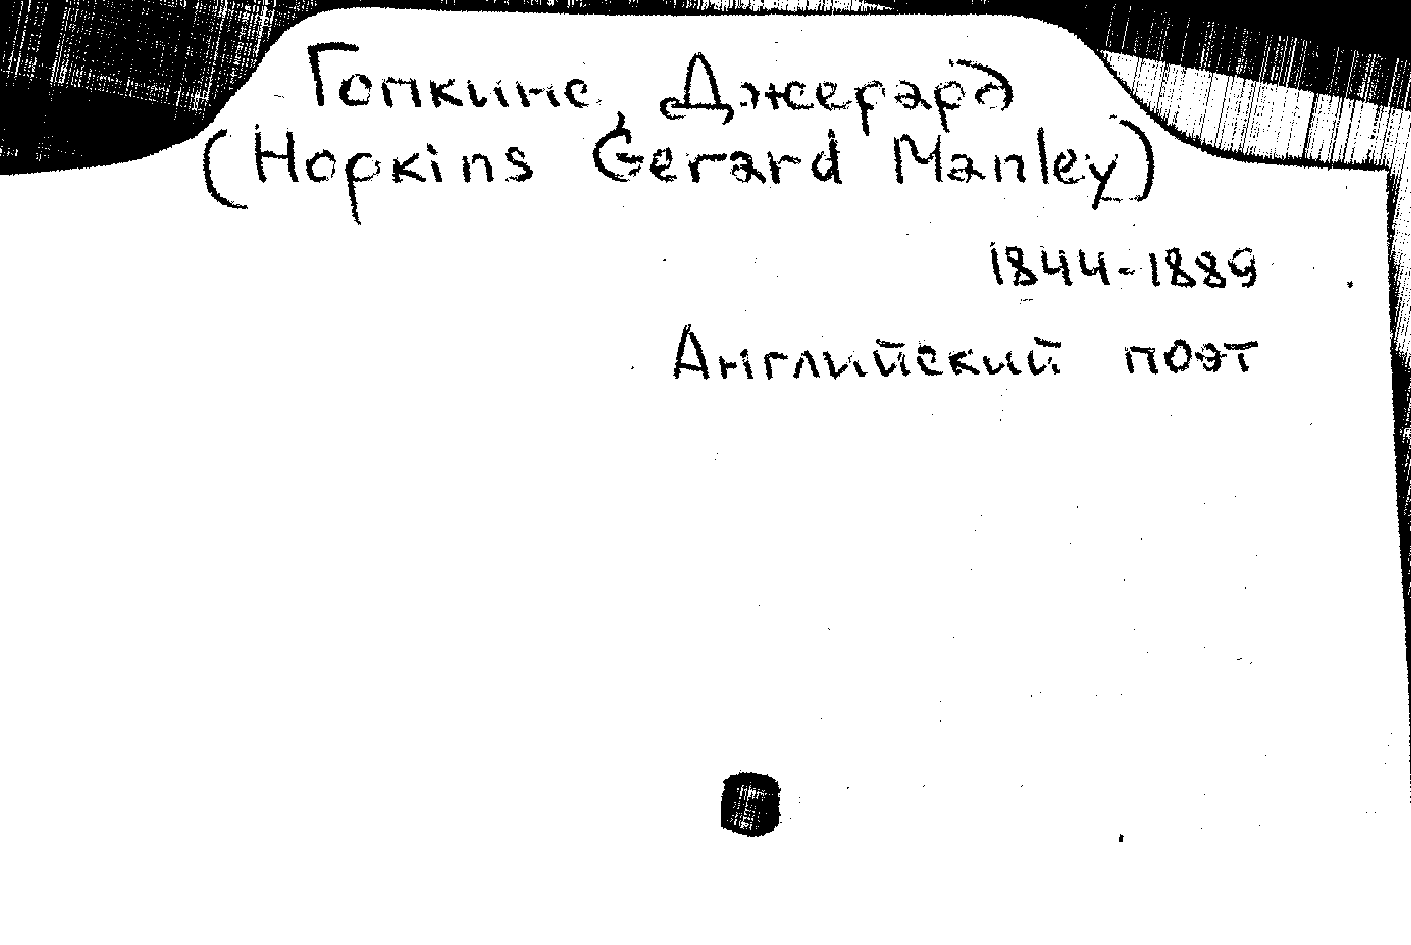 Гопкинс, Джерард
(Hopkins Gerard Manley)
1844-1889
Английский поэт